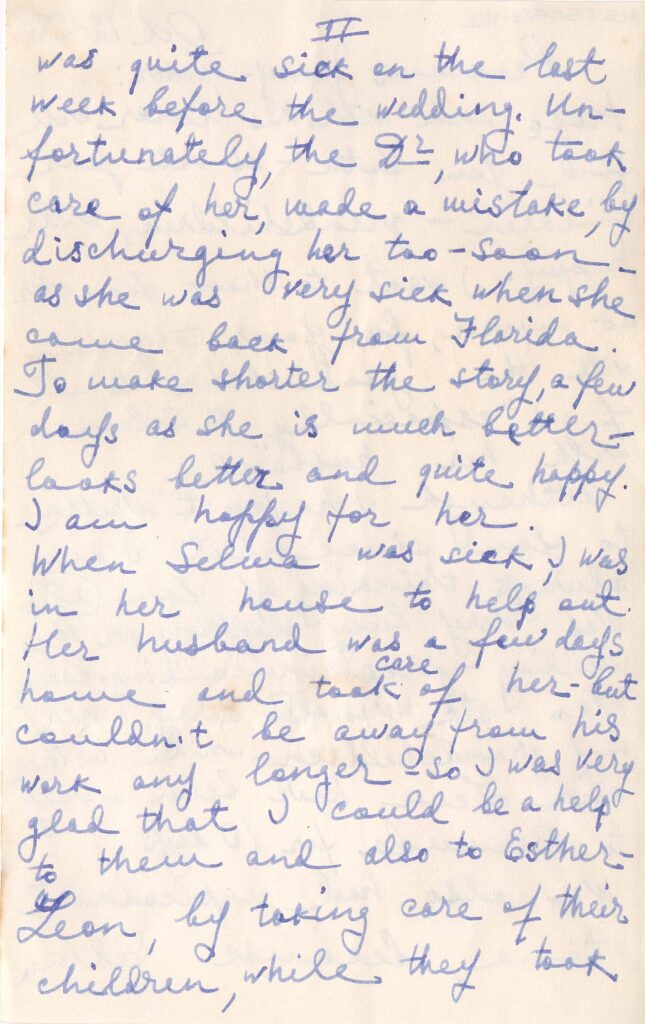 II
was quite sick on the last
week before the wedding. Un-
fortunately, the Dr, who took
care of her, made a mistake, by
discharging her too-soon -
as she was very sick when she
came back from Florida.
To make shorter the story, a few
days as she is much better-
looks better and quite happy.
I am happy for her.
When Selma was sick, I was
in her house to help out.
Her husband was a few days
home and took care of her-but
couldn't be away from his
work any longer - so I was very
glad that I could be a help
to them and also to Esther-
Leon, by taking care of their
children, while they took